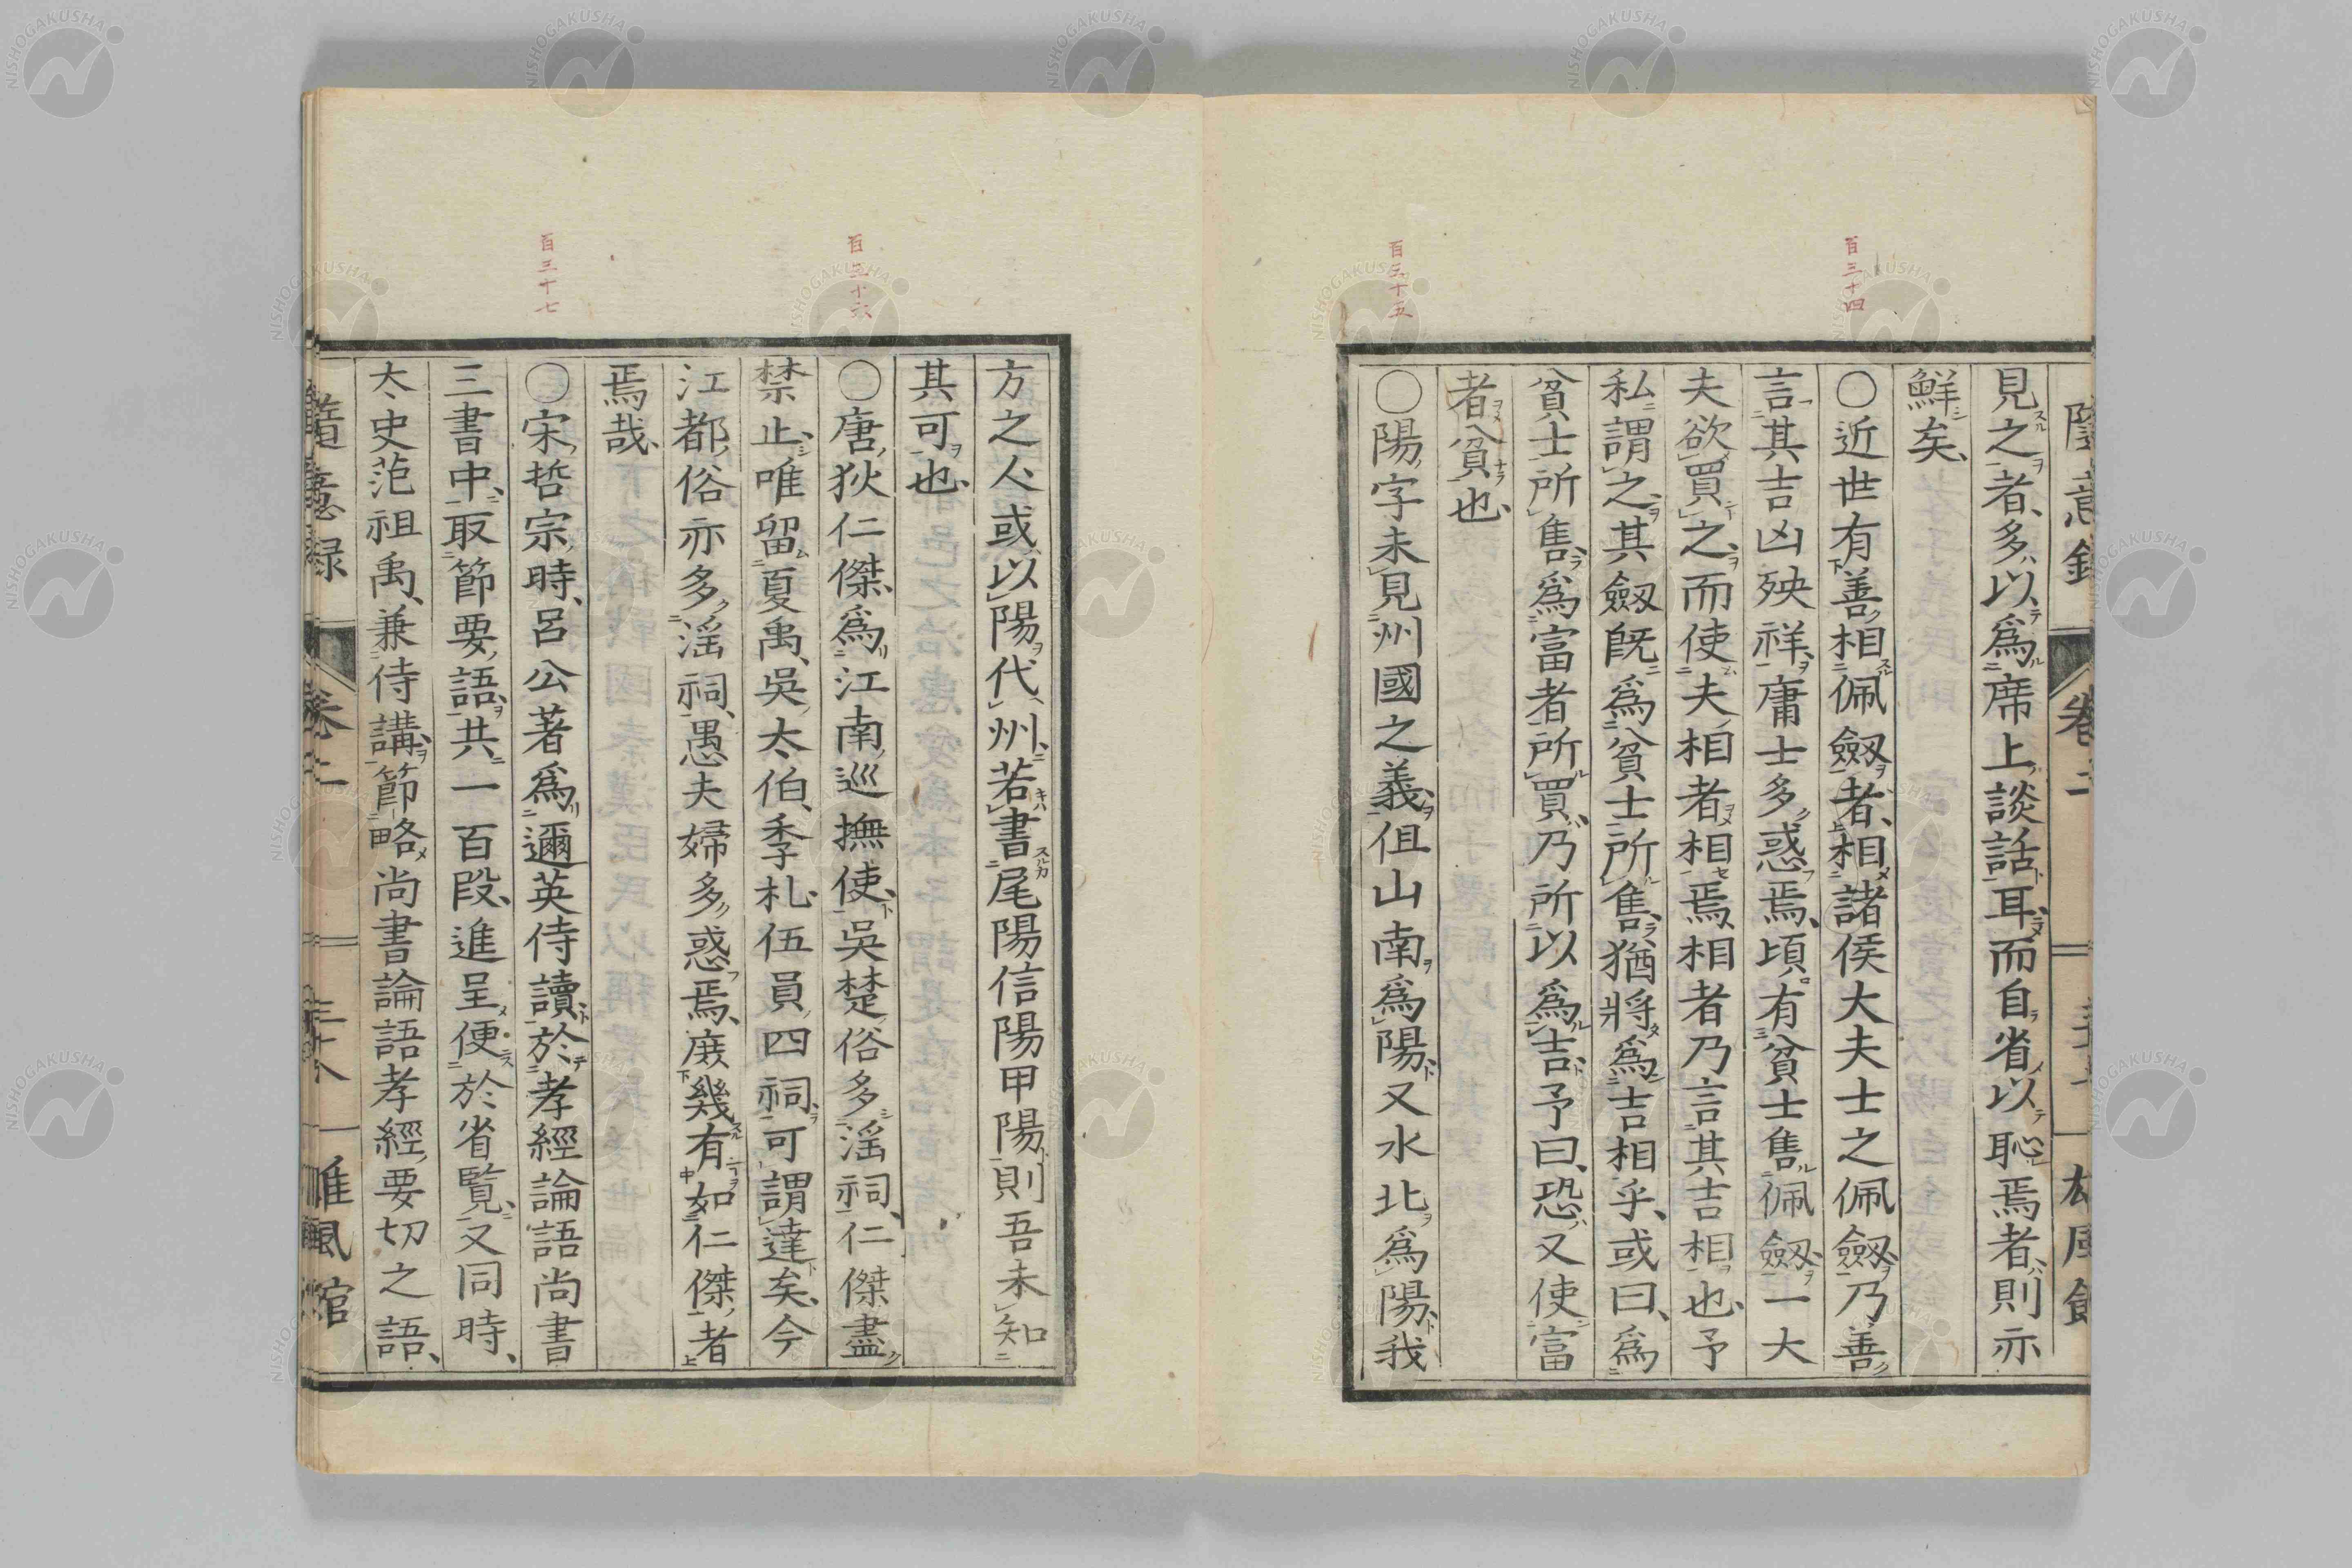 百三十四
百三十五
見之者多以爲席上談話耳而自省以恥焉者則亦
鮮矣
○近世有善相佩劔者相諸侯大夫士之佩劔乃善
言其吉凶殃祥庸士多惑焉頃有貧士售佩劔一大
夫欲買之而使夫相者相焉相者乃言其吉相也予
私謂之其劔既爲貧士所售猶將爲吉相乎或曰爲
貧士所售爲富者所買乃所以爲吉予曰恐又使富
者貧也
○陽字未見州國之義但山南爲陽又水北爲陽我
百三十六
百三十七
方之人或以陽代州若書尾陽信陽甲陽則吾未知
其可也
○唐狄仁傑爲江南巡撫使吳楚俗多淫祠仁傑盡
禁止唯留夏禹吳太伯季札伍員四祠可謂達矣今
江都俗亦多淫祠愚夫婦多惑焉庶幾有如仁傑者
焉哉
○宋哲宗時呂公著爲邇英侍讀於孝經論語尚書
三書中取節要語共一百段進呈便於省覧又同時
太史范祖禹兼侍講節略尚書論語孝經要切之語
卷二